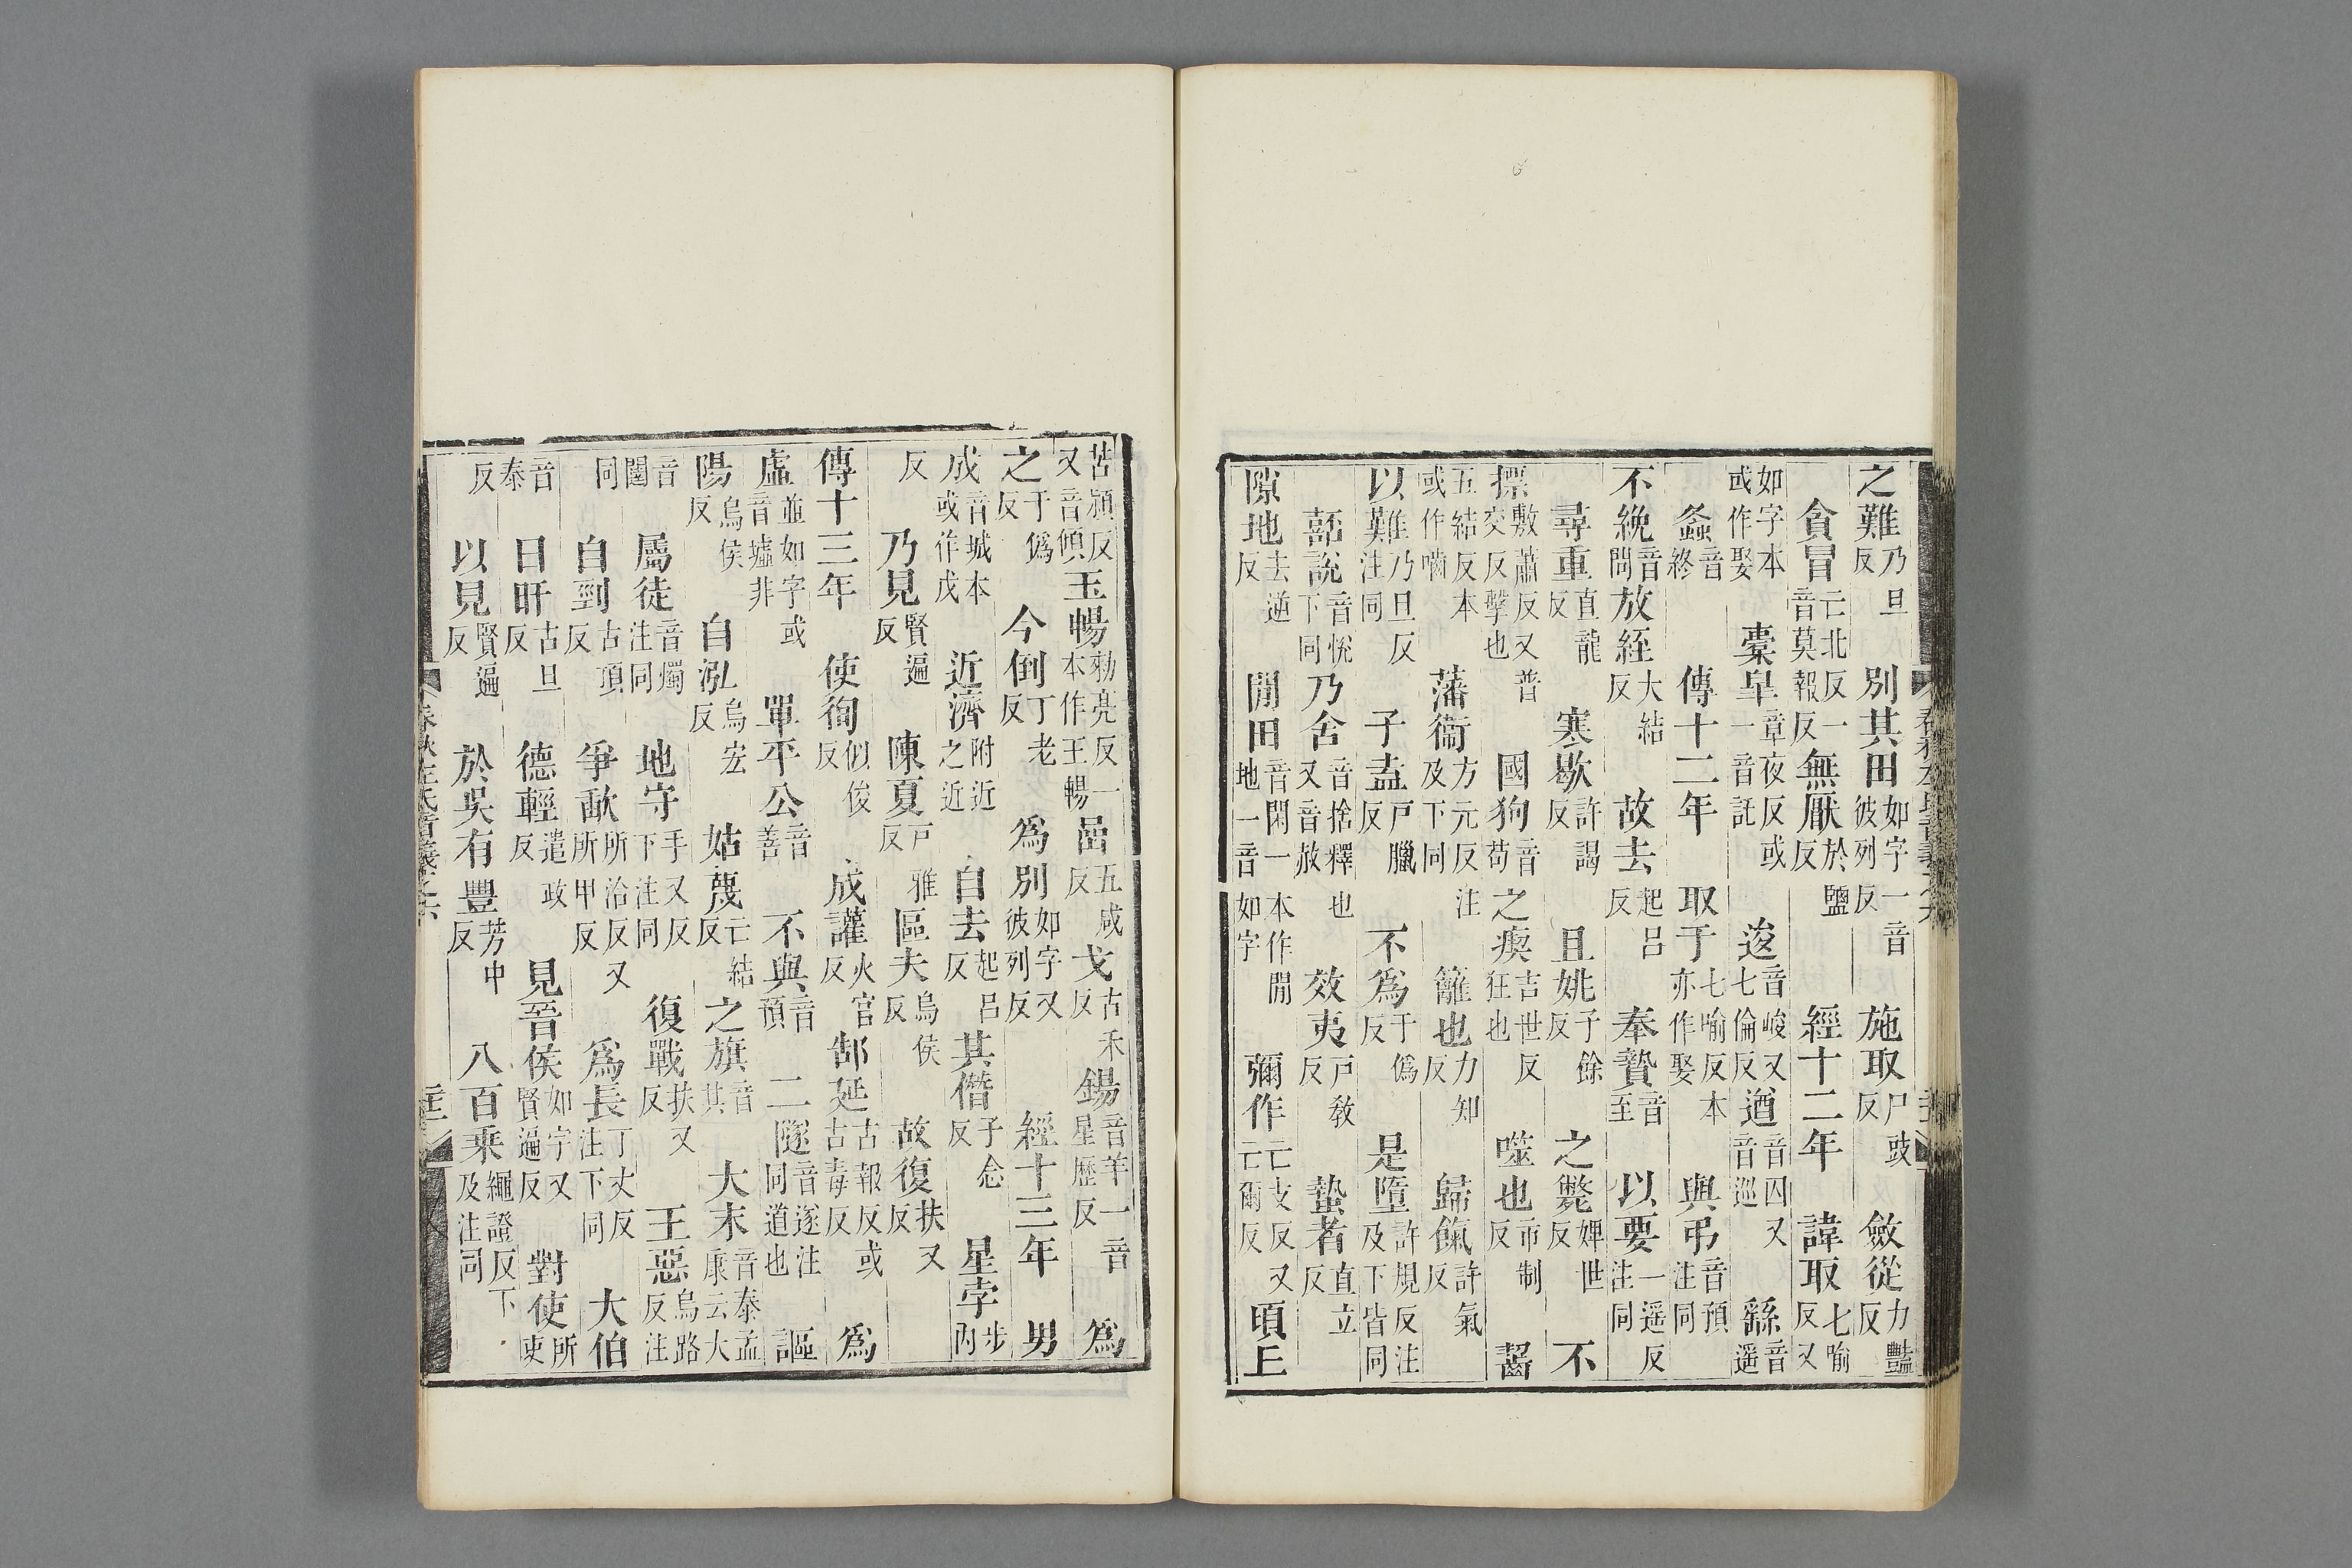 之難乃旦反　別其田如字一音彼列反　施取尸豉反　斂從力豔反
貪冒亡北反一音莫報反　無厭於鹽反　經十二年　諱取七喻反又
如字本或作娶　橐皐章夜反或一音託　逡音峻又七倫反　遒音囚又音巡　繇音遥
螽音終　傳十二年　取于七喻反本亦作娶　與弔音預注同
不絻音問　放絰大結反　故去起呂反　奉贄音至　以要一遥反注同
尋重直龍反　寒歇許謁反　且姚子餘反　之斃婢世反　不
摽敷蕭反又普交反擊也　國狗音苟　之瘈吉世反狂也　噬也市制反　齧
五結反本或作嚙　藩衞方元反注及下同　籬也力知反　歸餼許氣反
以難乃旦反注同　子盍戶臘反　不爲于僞反　是墮許規反注及下皆同
嚭說音悅下同　乃舍音捨釋也又音赦　效夷戶敎反　蟄者直立反
隙地去逆反　閒田音閑一本作閒地一音如字　彌作亡支反又亡爾反　頃丘
春秋左氏音義之六
苦潁反又音傾　玉暢勑亮反一本作王暢　嵒五咸反　戈古禾反　鍚音羊一音星歷反　爲
之于僞反　今倒丁老反　爲別如字又彼列反　經十三年　男
成音城本或作戌　近濟附近之近　自去起呂反　其僭子念反　星孛步內
反　乃見賢遍反　陳夏戶雅反　區夫烏侯反　故復扶又反
傳十三年　使徇似俊反　成讙火官反　郜延古報反或古毒反　爲
虛並如字或音墟非　單平公音善　不與音預　二隧音遂注同道也　謳
陽烏侯反　自泓烏宏反　姑蔑亡結反　之旗音其　大末音泰孟康云大
音闥　屬徒音燭注同　地守手又反下注同　復戰扶又反　王惡烏路反注
同　自剄古頂反　爭歃所洽反又所甲反　爲長丁丈反注下同　大伯
音泰　日旰古旦反　德輕遣政反　見晉侯如字又賢遍反　對使所吏
反　以見賢遍反　於吳有豐芳中反　八百乘繩證反下及注同
春秋左氏音義之六